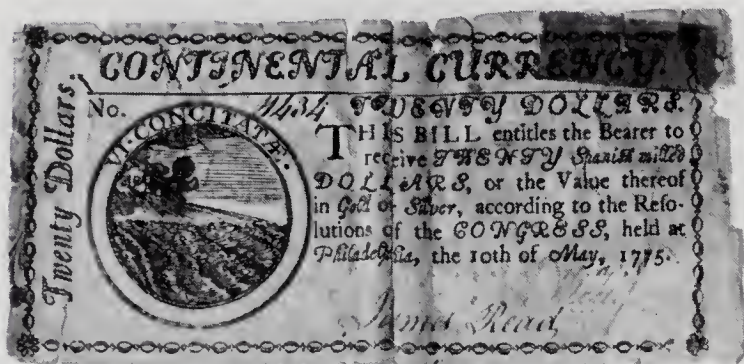 CONTINENTAL CURRENCY.
Twenty Dollars.
No. 9434 TWENTY DOLLARS.
VI·CONCITATÆ.
THIS BILL entitles the Bearer to
receive TWENTY Spanish milled
DOLLARS, or the Value thereof
in Gold or Silver, according to the Reſo-
lutions of the CONGRESS, held at
Philadelphia, the 10th of May, 1775.
James Read